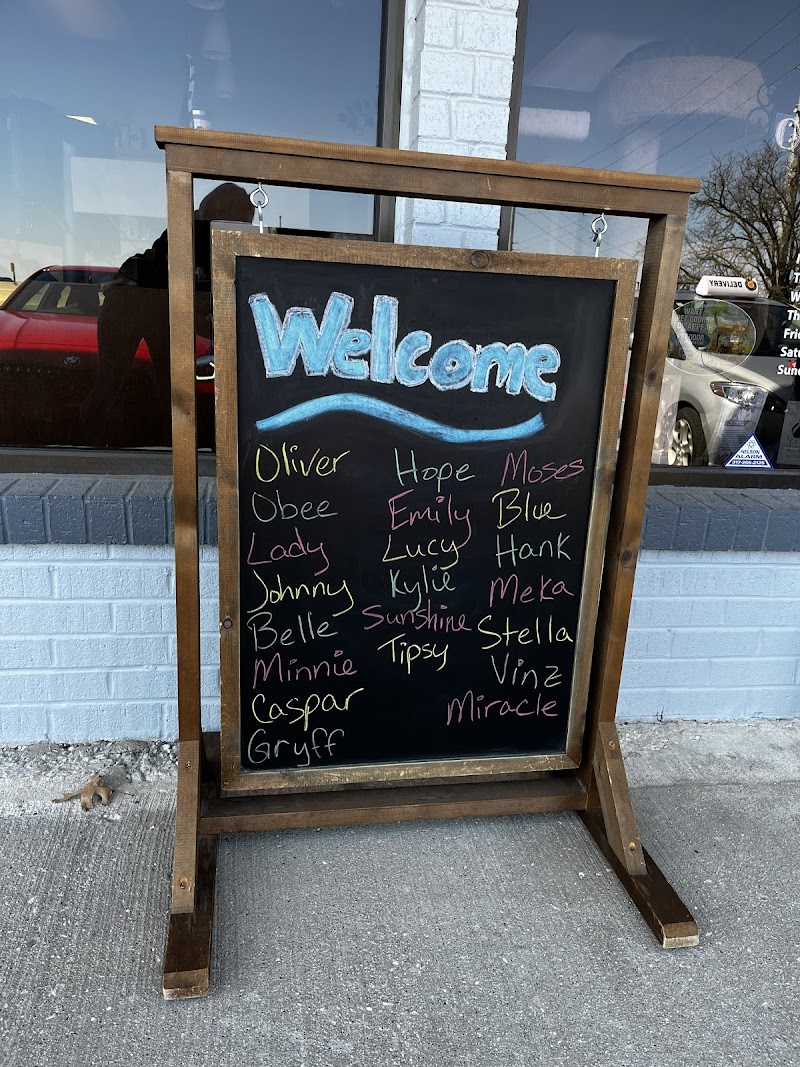 Welcome
Oliver
Obee
Lady
Johnny
Belle
Minnie
Caspar
Gryff
Hope
Emily
Lucy
Kylie
Sunshine
Tipsy
Moses
Blue
Hank
Meka
Stella
Vinz
Miracle
DELIVERY
Th
Frid
Satu
Sund
NELSON
ALARM